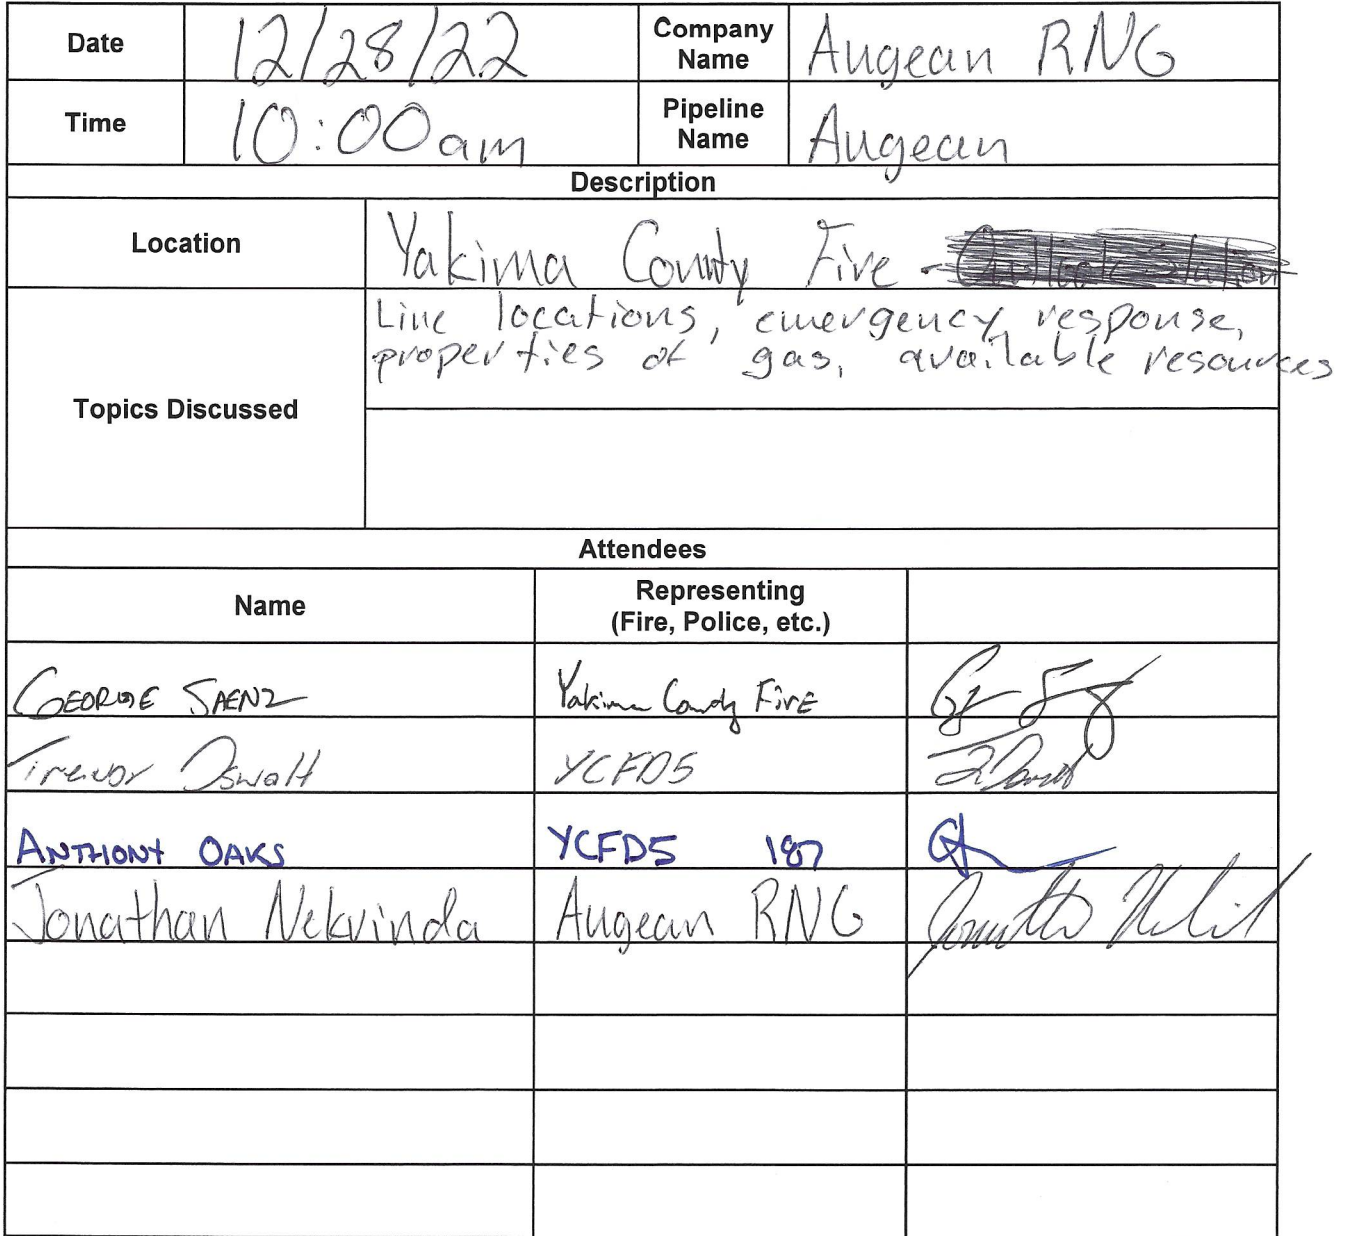 Date 12/28/22 Company Name Augean RNG
Time 10:00am Pipeline Name Augean
Description
Location Yakima County Fire -
Topics Discussed Line locations, emergency response,
properties of gas, available resources
Attendees
Name Representing (Fire, Police, etc.)
GEORGE SAENZ Yakima County FirE
Trevor Oswalt YCFD5
ANTHONY OAKS YCFD5 187
Jonathan Nekvinda Augean RNG